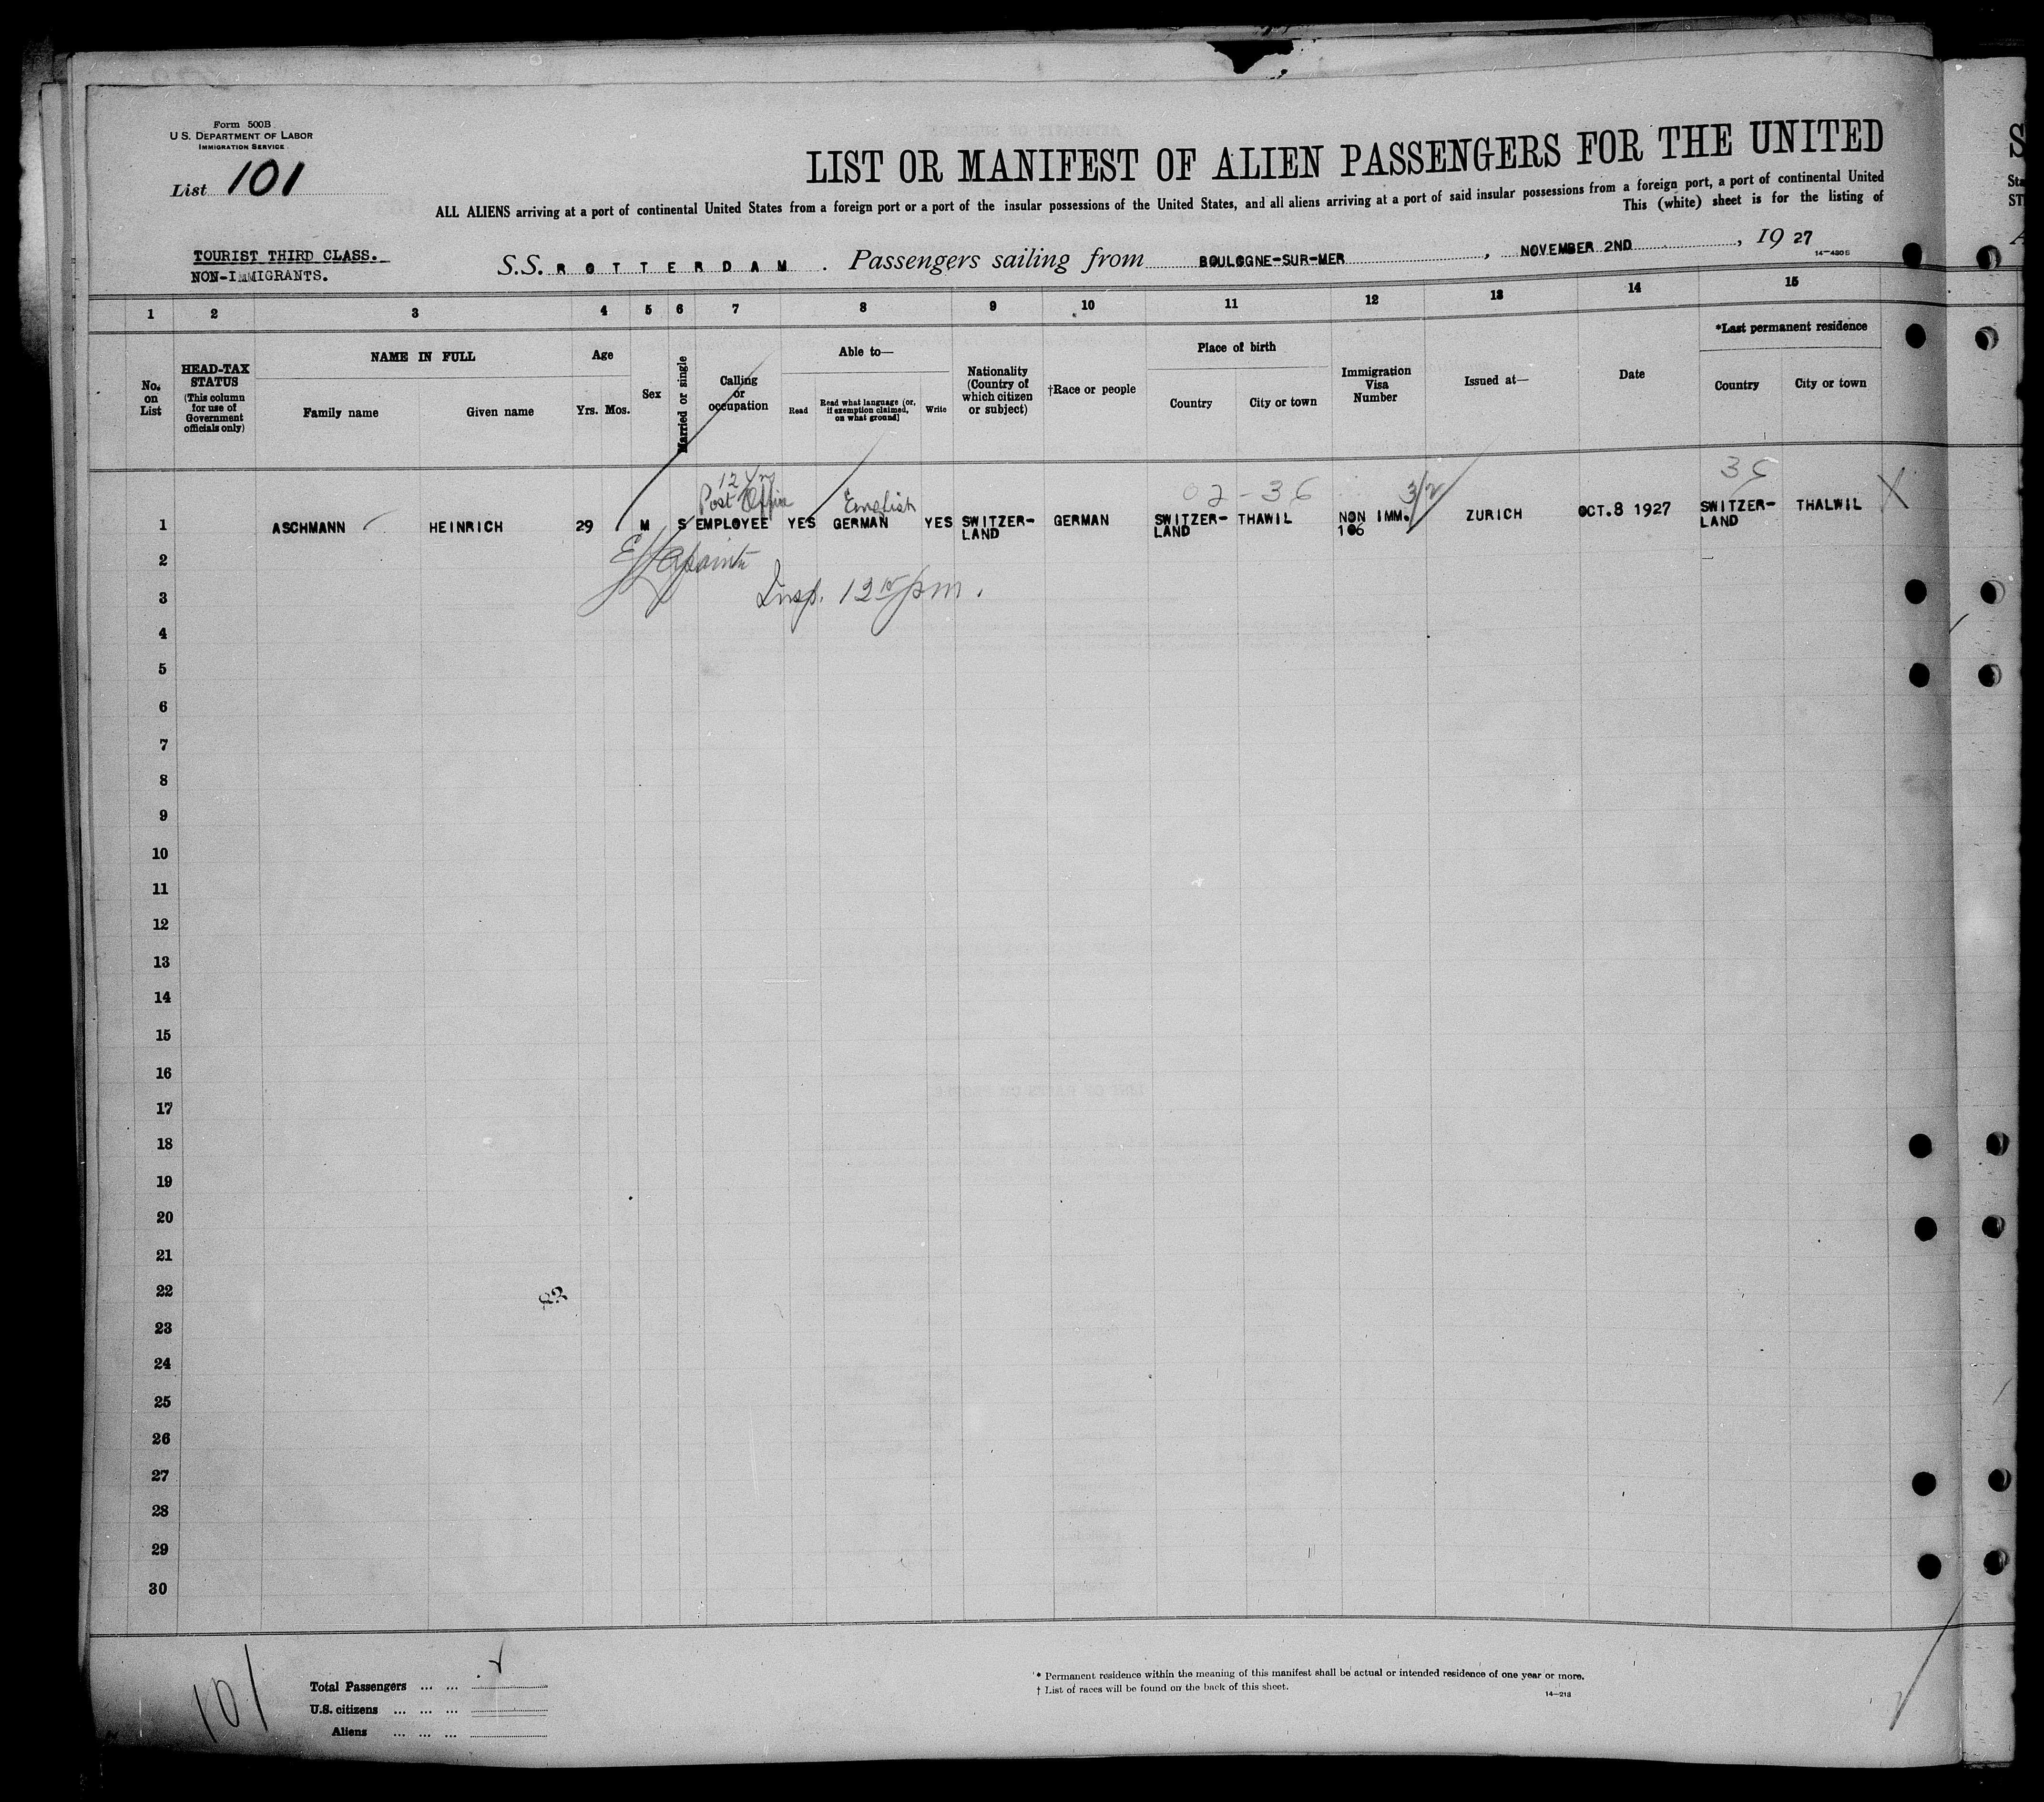 Form 500B
U S. DEPARTMENT OF LABOR
IMMIGRATION SERVICE
List 101
LIST OR MANIFEST OF ALIEN PASSENGERS FOR THE UNITED
ALL ALIENS arriving at a port of continental United States from a foreign port or a port of the insular possessions of the United States, and all aliens arriving at a port of said insular possessions from a foreign port, a port of continental United
This (white) sheet is for the listing of
TOURIST THIRD CLASS.
NON-IMMIGRANTS.
S.S. ROTTERDAM. Passengers sailing from BOULOGNE-SUR-MER, NOVEMBER 2ND, 19 27
14-430B
1 2 3 4 5 6 7 8 9 10 11 12 13 14 15
No. on List
HEAD-TAX STATUS
(This column for use of Government officials only)
NAME IN FULL
Family name
Given name
Age
Yrs. Mos.
Sex
Married or single
Calling or occupation
Able to—
Read
Read what language (or, if exemption claimed, on what ground)
Write
Nationality (Country of which citizen or subject)
†Race or people
Place of birth
Country
City or town
Immigration Visa Number
Issued at—
Date
*Last permanent residence
Country
City or town
12
Post Office
English
02-36
3/2
36
1 ASCHMANN HEINRICH 29 M S EMPLOYEE YES GERMAN YES SWITZER-LAND GERMAN SWITZER-LAND THAWIL NON IMM. 106 ZURICH OCT.8 1927 SWITZER-LAND THALWIL X
2
Insp. 12 pm.
3
4
5
6
7
8
9
10
11
12
13
14
15
16
17
18
19
20
21
22
23
24
25
26
27
28
29
30
101
Total Passengers ... ...
U.S. citizens ... ... ...
Aliens ... ... ...
* Permanent residence within the meaning of this manifest shall be actual or intended residence of one year or more.
† List of races will be found on the back of this sheet.
14-213